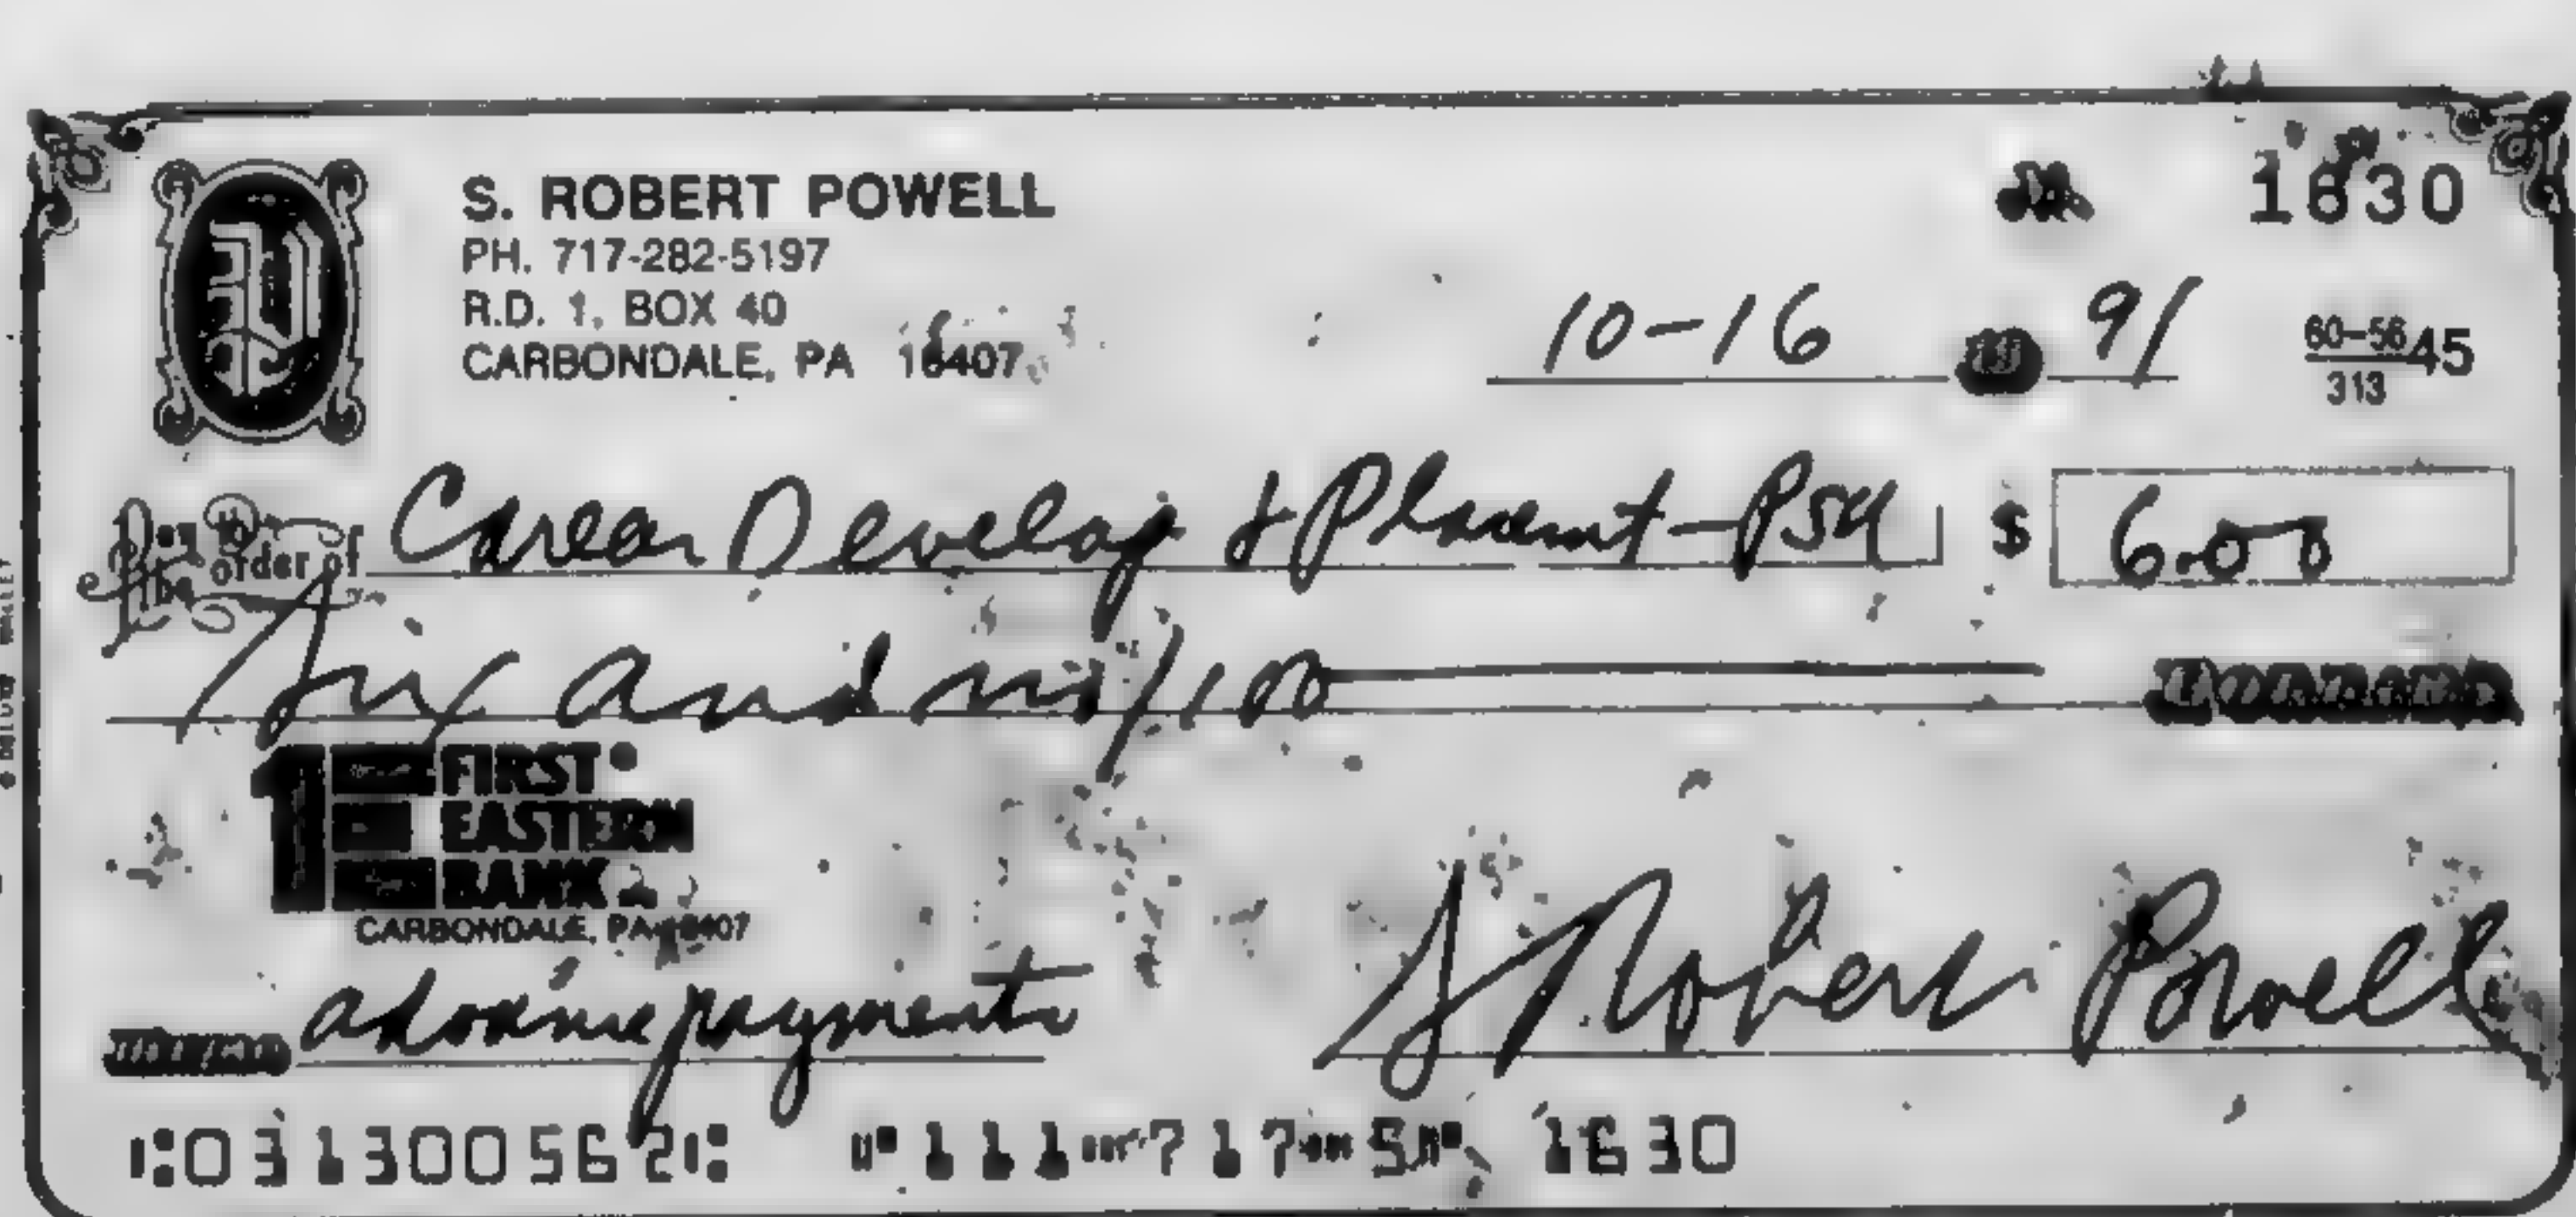 S. ROBERT POWELL
1630
PH. 717-282-5197
R.D. 1, BOX 40
CARBONDALE, PA 18407
10-16 19 91
60-56 45
313
Pay to the order of Career Develop & Placemt-PSU $ 6.00
Six and no/100 DOLLARS
FIRST
EASTERN
BANK
CARBONDALE, PA 18407
advance payment S Robert Powell
⑆031300562⑆ ⑈111⑉717⑉5⑈ 1630